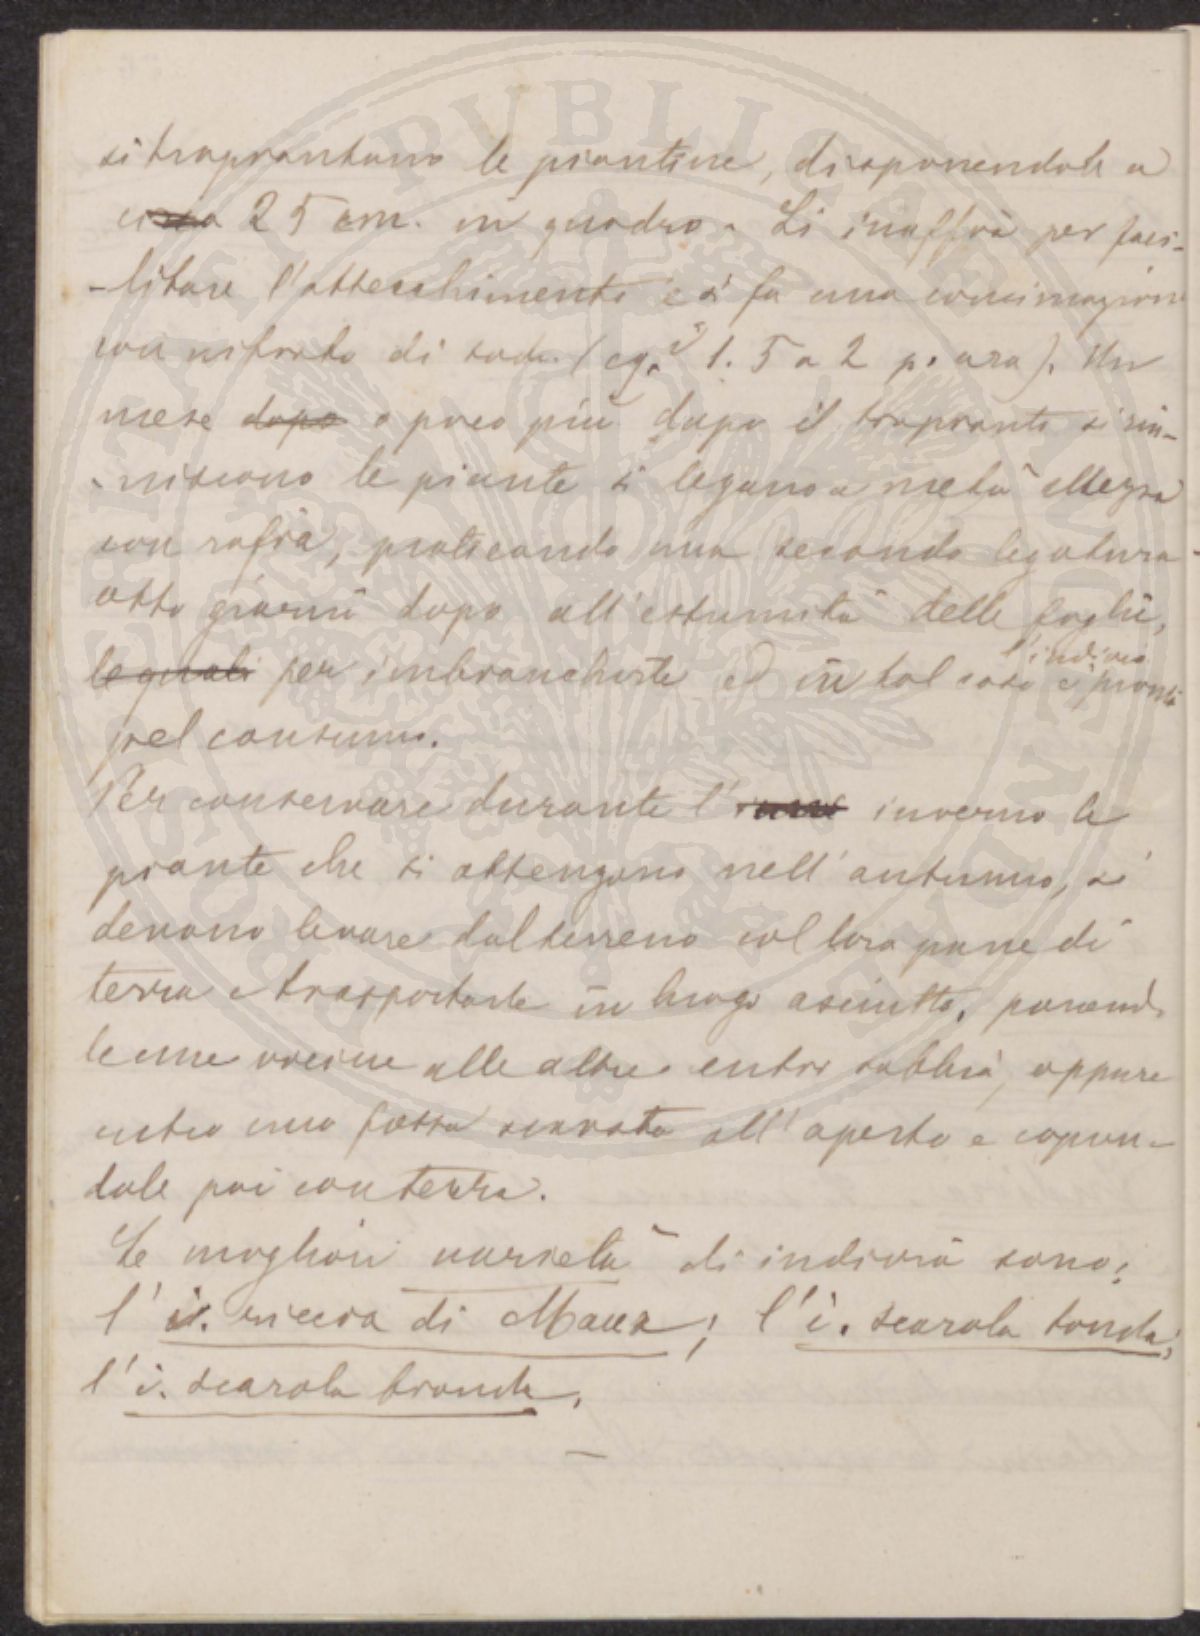 si trapiantano le piantine, disponendole a
circa 25 cm. in quadro. Si inaffia per faci-
-litare l'attecchimento e si fa una concimazione
con nitrato di soda (cg.i 1.5 a 2 p. ara). Un
mese dopo o poco più dopo il trapianto si riu-
-niscono le piante si legano a metà altezza
con rafia, praticando una seconda legatura
otto giorni dopo all'estremità delle foglie,
le quali per imbianchirle ed in tal caso l'indivia è pronta
pel consumo.
Per conservare durante l' inverno le
piante che si ottengono nell'autunno, si
devono levare dal terreno col loro pane di
terra e trasportarle in luogo asciutto, ponendo
le une vicine alle altre entro sabbia, oppure
entro una fossa scavata all'aperto e copren-
dole poi con terra.
Le migliori varietà di indivia sono:
l'i. riccia di Meaux; l'i. scarola tonda;
l'i. scarola bionda.